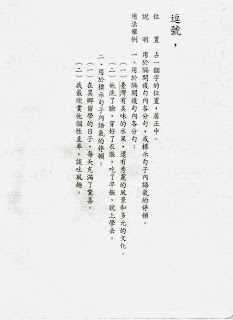 逗號，
位　置　占一個字的位置，居正中。
說　明　用於隔開複句內各分句，或標示句子內語氣的停頓。
用法舉例　一、用於隔開複句內各分句：
（一）臺灣有美味的水果，還有秀麗的風景和多元的文化。
（二）他洗了臉，穿好了衣服，吃了早飯，就上學去。
二、用於標示句子內語氣的停頓：
（一）在異鄉留學的日子，每天充滿了驚喜。
（二）我最欣賞他個性直率，談吐風趣。